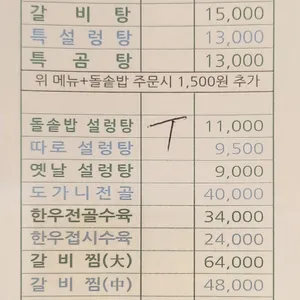 갈비탕 15,000
특설렁탕 13,000
특곰탕 13,000
위 메뉴+돌솥밥 주문시 1,500원 추가
돌솥밥 설렁탕 T 11,000
따로 설렁탕 9,500
옛날 설렁탕 9,000
도가니전골 40,000
한우전골수육 34,000
한우접시수육 24,000
갈비찜(大) 64,000
갈비찜(中) 48,000